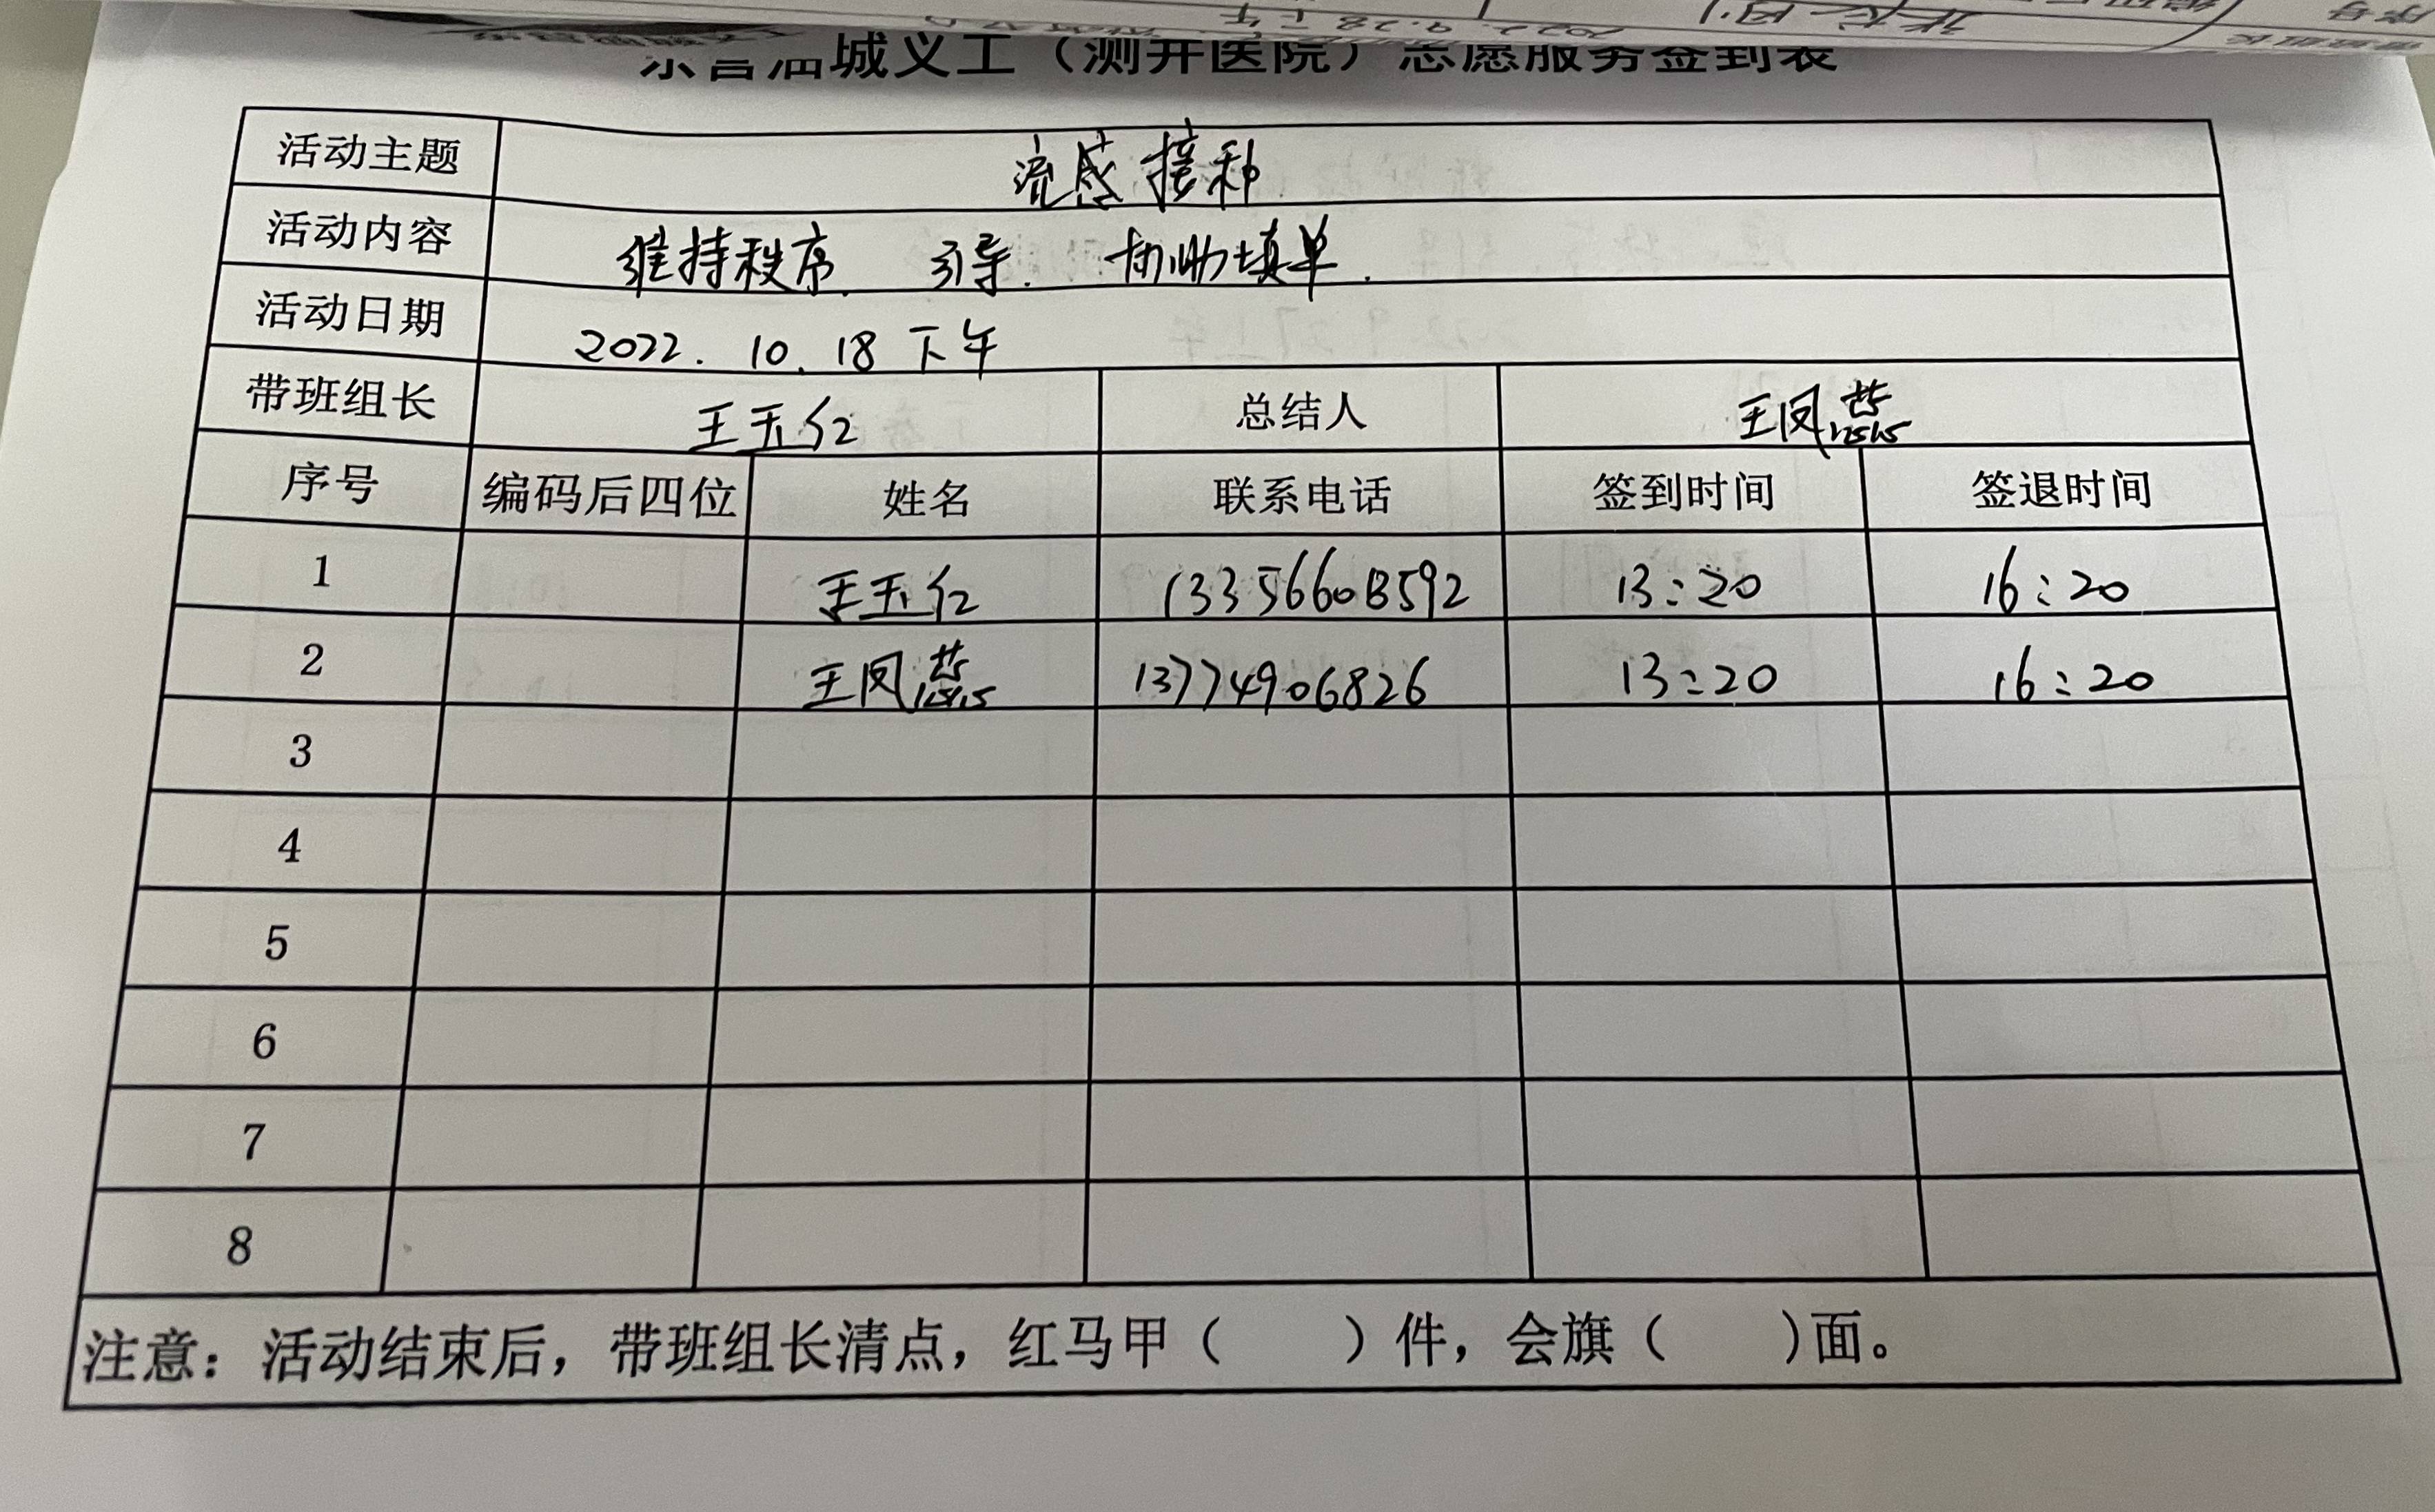 东营油城义工（测井医院）志愿服务签到表
活动主题 流感接种
活动内容 维持秩序. 引导. 协助填单.
活动日期 2022. 10. 18 下午
带班组长 王玉仁 总结人 王凤
序号 编码后四位 姓名 联系电话 签到时间 签退时间
1 王玉仁 13:20 16:20
2 王凤 13774906826 13:20 16:20
3
4
5
6
7
8
注意：活动结束后，带班组长清点，红马甲（ ）件，会旗（ ）面。